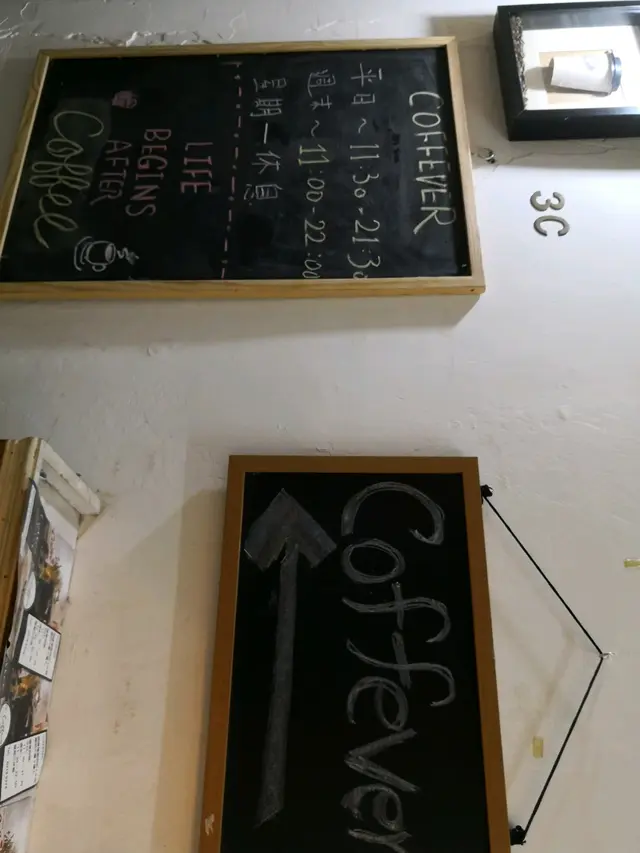 COFFEVER
平日~11:30-21:30
週末~11:00-22:00
星期一休息
LIFE
BEGINS
AFTER
Coffee
3C
Coffever